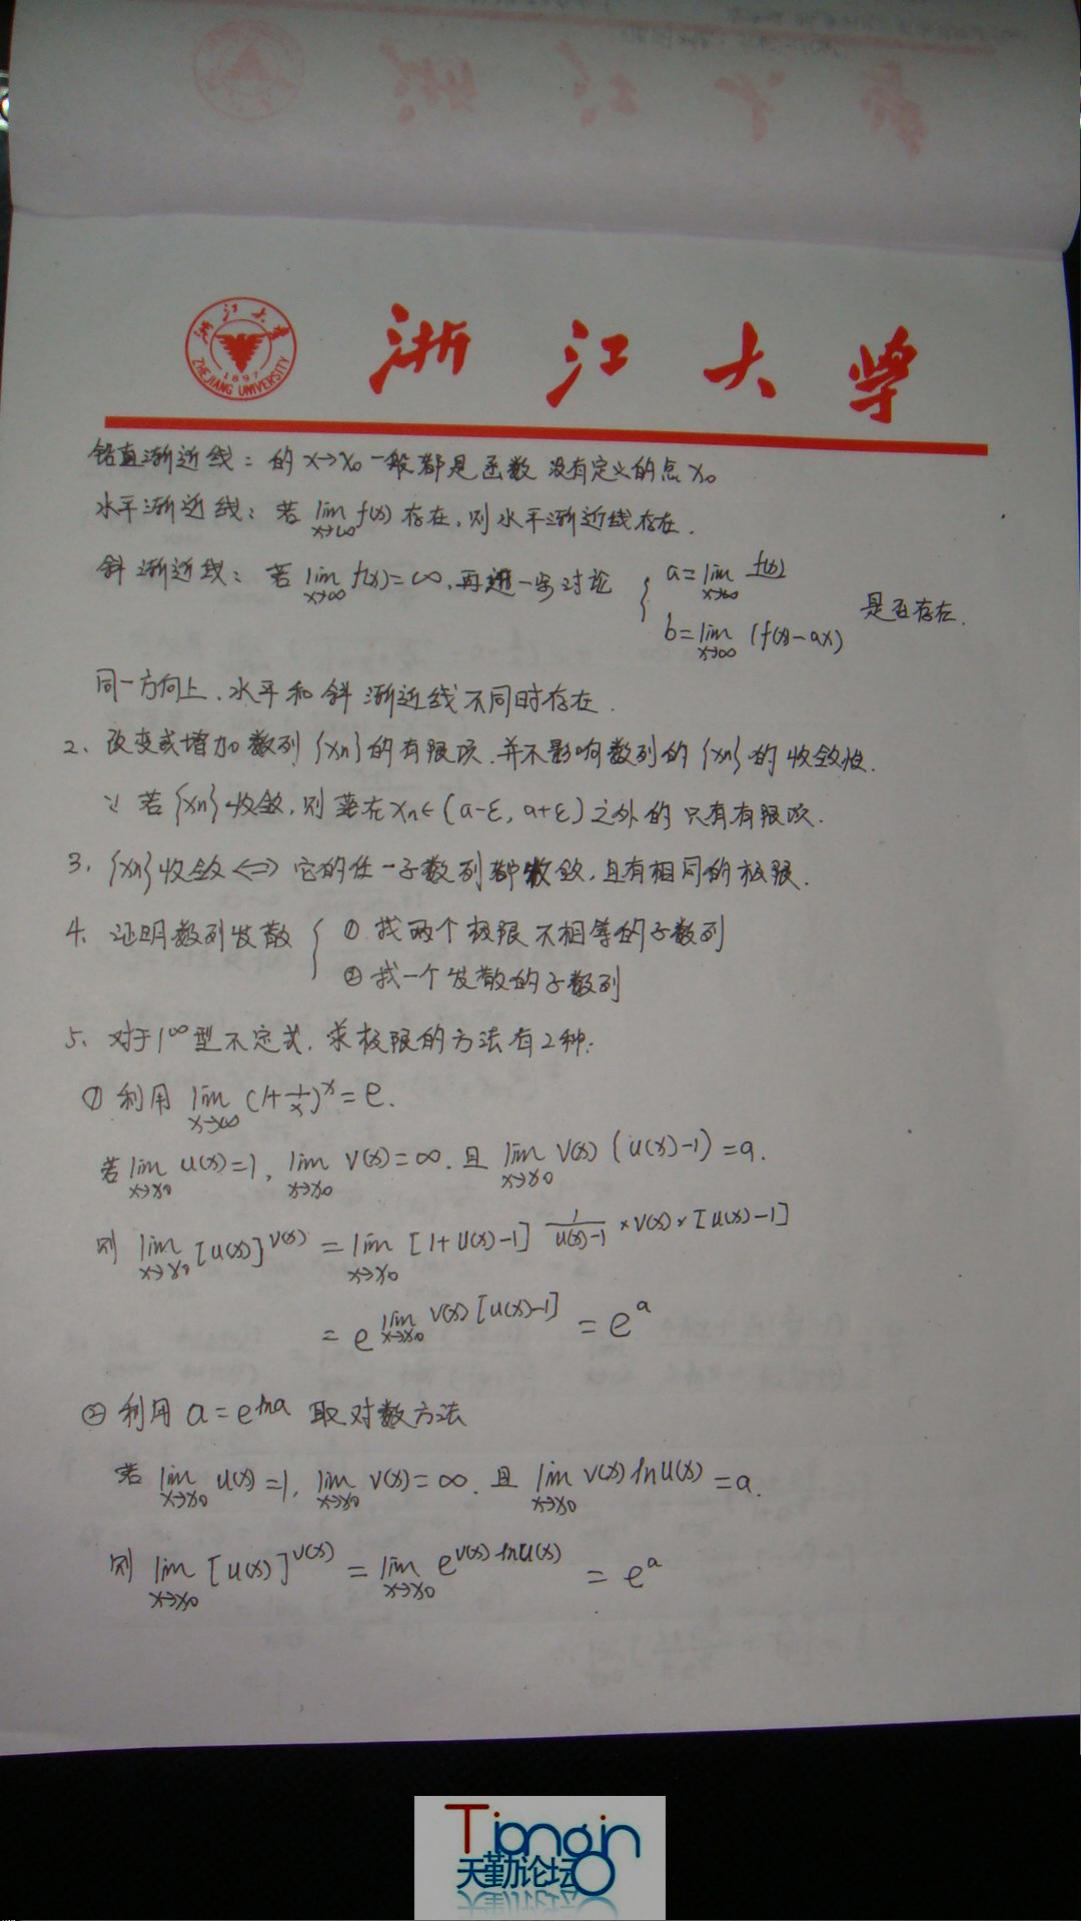 浙江大学
ZHEJIANG UNIVERSITY
1897
浙江大学
铅直渐近线：的 x→x₀ 一般都是函数没有定义的点 x₀
水平渐近线：若 lim_{x→∞} f(x) 存在，则水平渐近线存在．
斜渐近线：若 lim_{x→∞} f(x)=∞，再进一步讨论 { a=lim_{x→∞} f(x)/
b=lim_{x→∞} (f(x)-ax) 是否存在．
同一方向上，水平和斜渐近线不同时存在．
2、改变或增加数列{xn}的有限项，并不影响数列的{xn}的收敛性．
∵ 若{xn}收敛，则落在 xn∈(a-ε, a+ε)之外的只有有限项．
3、{xn}收敛 <=> 它的任一子数列都收敛，且有相同的极限．
4、证明数列发散 { ① 找两个极限不相等的子数列
② 找一个发散的子数列
5、对于1^∞型不定式，求极限的方法有2种：
① 利用 lim_{x→∞} (1+1/x)^x = e．
若 lim_{x→x₀} u(x)=1, lim_{x→x₀} v(x)=∞．且 lim_{x→x₀} v(x)(u(x)-1)=a．
则 lim_{x→x₀} [u(x)]^{v(x)} = lim_{x→x₀} [1+u(x)-1]^{1/(u(x)-1) × v(x) × [u(x)-1]}
= e^{lim_{x→x₀} v(x)[u(x)-1]} = e^a
② 利用 a=e^{lna} 取对数方法
若 lim_{x→x₀} u(x)=1, lim_{x→x₀} v(x)=∞．且 lim_{x→x₀} v(x)lnu(x)=a．
则 lim_{x→x₀} [u(x)]^{v(x)} = lim_{x→x₀} e^{v(x)lnu(x)} = e^a
Tianqin
天勤论坛